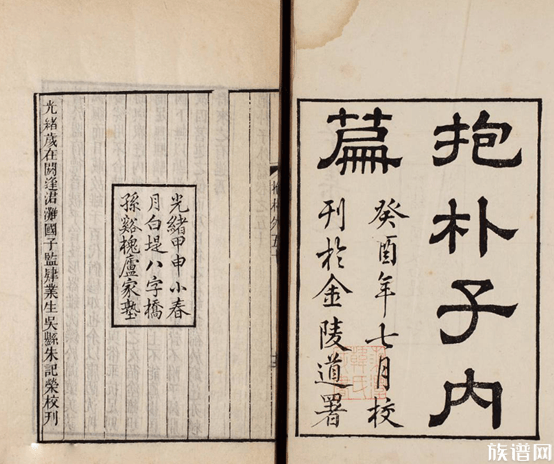 抱朴子內
篇
癸酉年七月校
刊於金陵道署
光緒甲申小春
月白堤八字橋
孫谿槐廬家塾
光緒歲在閼逢涒灘國子監肄業生吳縣朱記榮校刊
族谱网